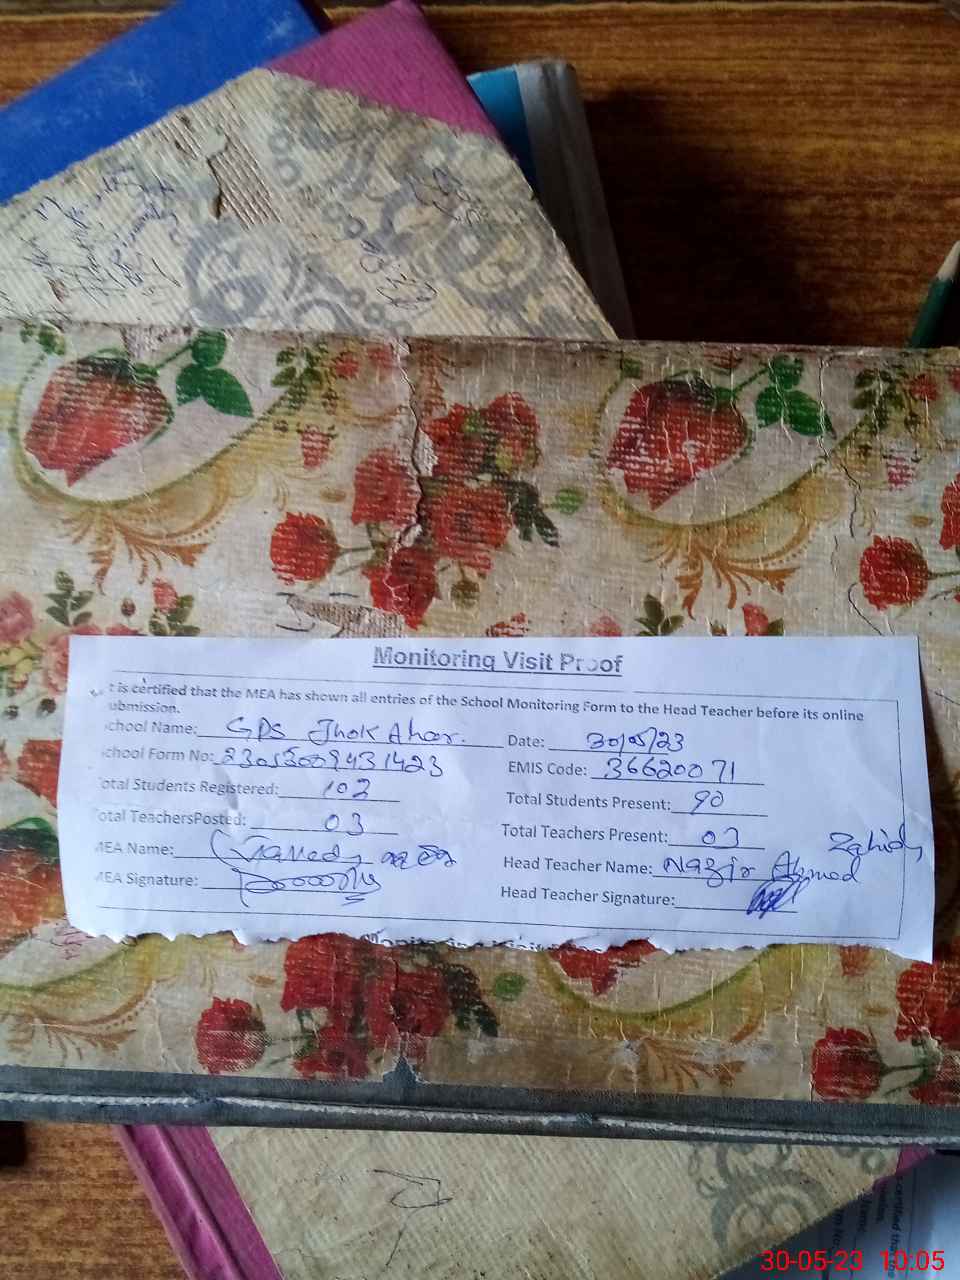 Monitoring Visit Proof
t is certified that the MEA has shown all entries of the School Monitoring Form to the Head Teacher before its online
ubmission.
chool Name: GPS Jhok Ahor. Date: 30/05/23
chool Form No: 23053009431423 EMIS Code: 36620071
otal Students Registered: 102 Total Students Present: 90
otal TeachersPosted: 03 Total Teachers Present: 03
MEA Name: Head Teacher Name: Nazir Ahmed Zahid
MEA Signature: Head Teacher Signature:
30-05-23 10:05